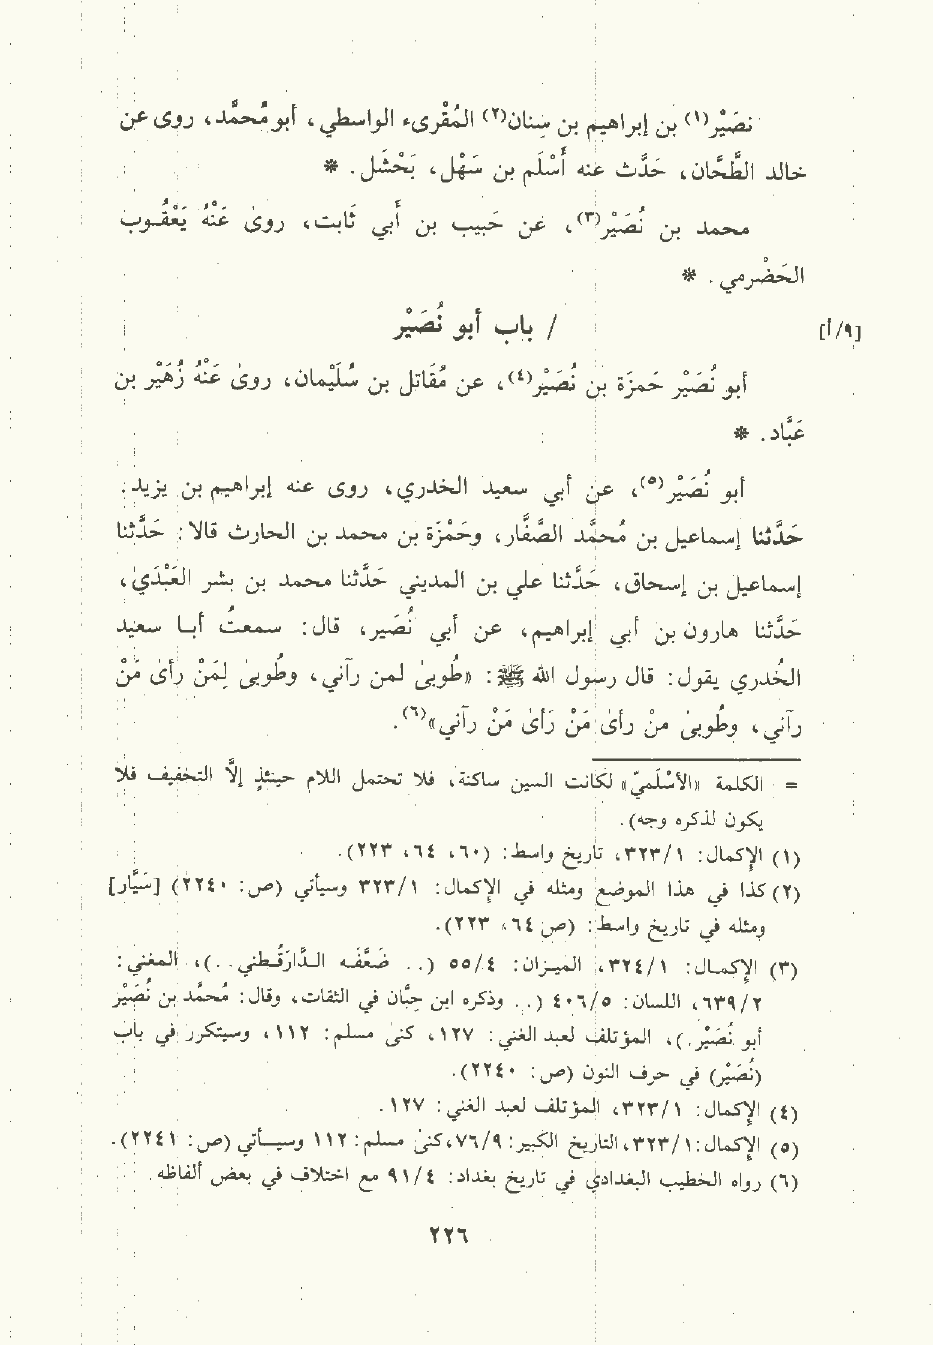 نصَيْر(١) بن إبراهيم بن سنان(٢) المُقْرىء الواسطي، أبو مُحمَّد، روى عن
خالد الطَّحَّان، حَدَّث عنه أَسْلَم بن سَهْل، بَحْشَل. *
محمد بن نُصَيْر(٣)، عن حَبيب بن أَبي ثَابت، روىٰ عَنْهُ يَعْقُـوب
الحَضْرمي. *
[٩/أ] / باب أبو نُصَيْر
أبو نُصَيْر حَمزَة بن نُصَيْر(٤)، عن مُقَاتل بن سُلَيْمان، روى عَنْهُ زُهَيْر بن
عَبَّاد. *
أبو نُصَيْر(٥)، عن أبي سعيد الخدري، روى عنه إبراهيم بن يزيد:
حَدَّثنا إسماعيل بن مُحمَّد الصَّفَّار، وحَمْزَة بن محمد بن الحارث قالا: حَدَّثنا
إسماعيل بن إسحاق، حَدَّثنا علي بن المديني حَدَّثنا محمد بن بشر العَبْدَيٰ،
حَدَّثنا هارون بن أبي إبراهيم، عن أبي نُصَير، قال: سمعتُ أبـا سعيد
الخُدري يقول: قال رسول الله ﷺ: «طُوبىٰ لمن رآني، وطُوبىٰ لِمَنْ رأىٰ مَنْ
رآني، وطُوبىٰ منْ رأىٰ مَنْ رَأىٰ مَنْ رآني»(٦).
= الكلمة «الأسْلَميّ» لكانت السين ساكنة، فلا تحتمل اللام حينئذٍ إلَّا التخفيف فلا
يكون لذكره وجه).
(١) الإكمال: ٣٢٣/١، تاريخ واسط: (٦٠، ٦٤، ٢٢٣).
(٢) كذا في هذا الموضع ومثله في الإكمال: ٣٢٣/١ وسيأتي (ص: ٢٢٤٠) [سَيَّار]
ومثله في تاريخ واسط: (ص ٦٤، ٢٢٣).
(٣) الإكمـال: ٣٢٤/١، الميـزان: ٥٥/٤ (.. ضَعَّفَـه الـدَّارَقُـطني..)، المغني:
٦٣٩/٢، اللسان: ٤٠٦/٥ (.. وذكره ابن حِبَّان في الثقات، وقال: مُحمَّد بن نُصَيْر
أبو نُصَيْر.)، المؤتلف لعبد الغني: ١٢٧، كنىٰ مسلم: ١١٢، وسيتكرر في باب
(نُصَيْر) في حرف النون (ص: ٢٢٤٠).
(٤) الإكمال: ٣٢٣/١، المؤتلف لعبد الغني: ١٢٧.
(٥) الإكمال: ٣٢٣/١، التاريخ الكبير: ٧٦/٩، كنىٰ مسلم: ١١٢ وسيـأتي (ص: ٢٢٤١).
(٦) رواه الخطيب البغدادي في تاريخ بغداد: ٩١/٤ مع اختلاف في بعض ألفاظه.
٢٢٦